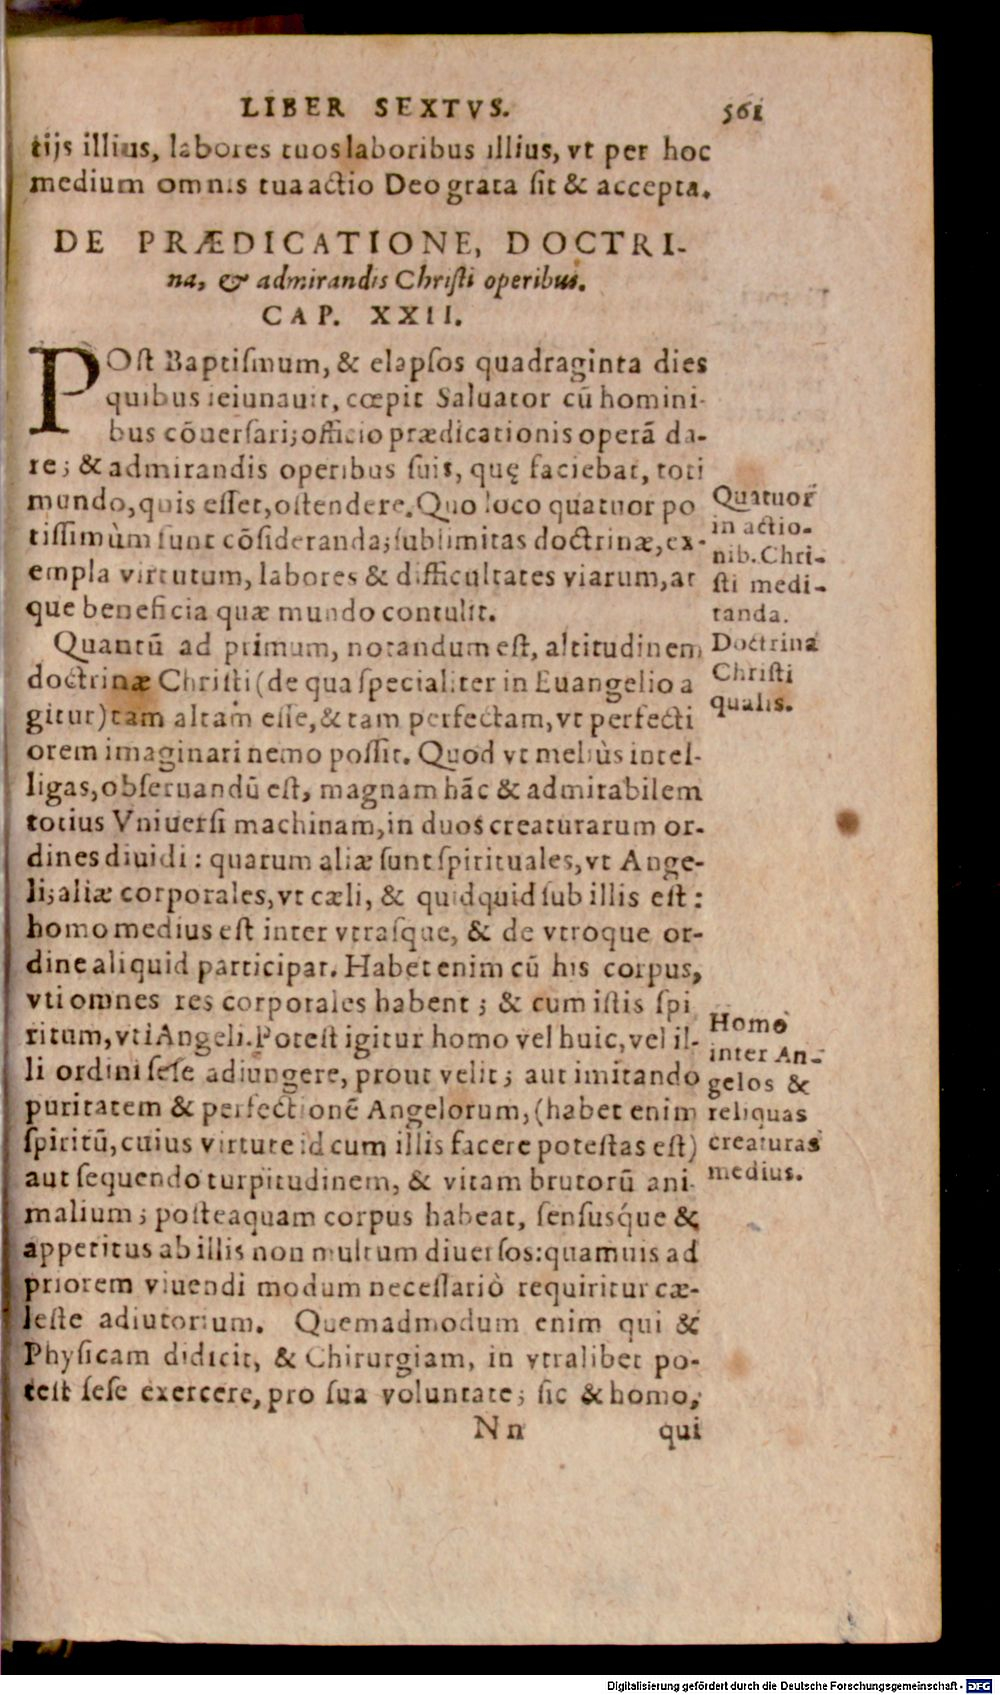 LIBER SEXTVS. 561
tijs illius, labores tuos laboribus illius, vt per hoc
medium omnis tua actio Deo grata sit & accepta.
DE PRÆDICATIONE, DOCTRI-
na, & admirandis Christi operibus.
CAP. XXII.
POst Baptismum, & elapsos quadraginta dies
quibus ieiunauit, cœpit Saluator cũ homini-
bus cõuersari; officio prædicationis operã da-
re; & admirandis operibus suis, quę faciebat, toti
mundo, quis esset, ostendere. Quo loco quatuor po
tissimùm sunt cõsideranda; sublimitas doctrinæ, ex-
empla virtutum, labores & difficultates viarum, at
que beneficia quæ mundo contulit.
Quatuor
in actio-
nib. Chri-
sti medi-
tanda.
Quantũ ad primum, notandum est, altitudinem
doctrinæ Christi (de qua specialiter in Euangelio a
gitur) tam altam esse, & tam perfectam, vt perfecti
orem imaginari nemo possit. Quod vt meliùs intel-
ligas, obseruandũ est, magnam hãc & admirabilem
totius Vniuersi machinam, in duos creaturarum or-
dines diuidi: quarum aliæ sunt spirituales, vt Ange-
li; aliæ corporales, vt cæli, & quidquid sub illis est:
homo medius est inter vtrasque, & de vtroque or-
dine aliquid participat. Habet enim cũ his corpus,
vti omnes res corporales habent; & cum istis spi
ritum, vti Angeli. Potest igitur homo vel huic, vel il-
li ordini sese adiungere, prout velit; aut imitando
puritatem & perfectionẽ Angelorum, (habet enim
spiritũ, cuius virtute id cum illis facere potestas est)
aut sequendo turpitudinem, & vitam brutorũ ani-
malium; posteaquam corpus habeat, sensusq́ue &
appetitus ab illis non multum diuersos: quamuis ad
priorem viuendi modum necessariò requiritur cæ-
leste adiutorium. Quemadmodum enim qui &
Physicam didicit, & Chirurgiam, in vtralibet po-
test sese exercere, pro sua voluntate; sic & homo,
Doctrina
Christi
qualis.
Homo
inter An-
gelos &
reliquas
creaturas
medius.
Nn qui
Digitalisierung gefördert durch die Deutsche Forschungsgemeinschaft - DFG